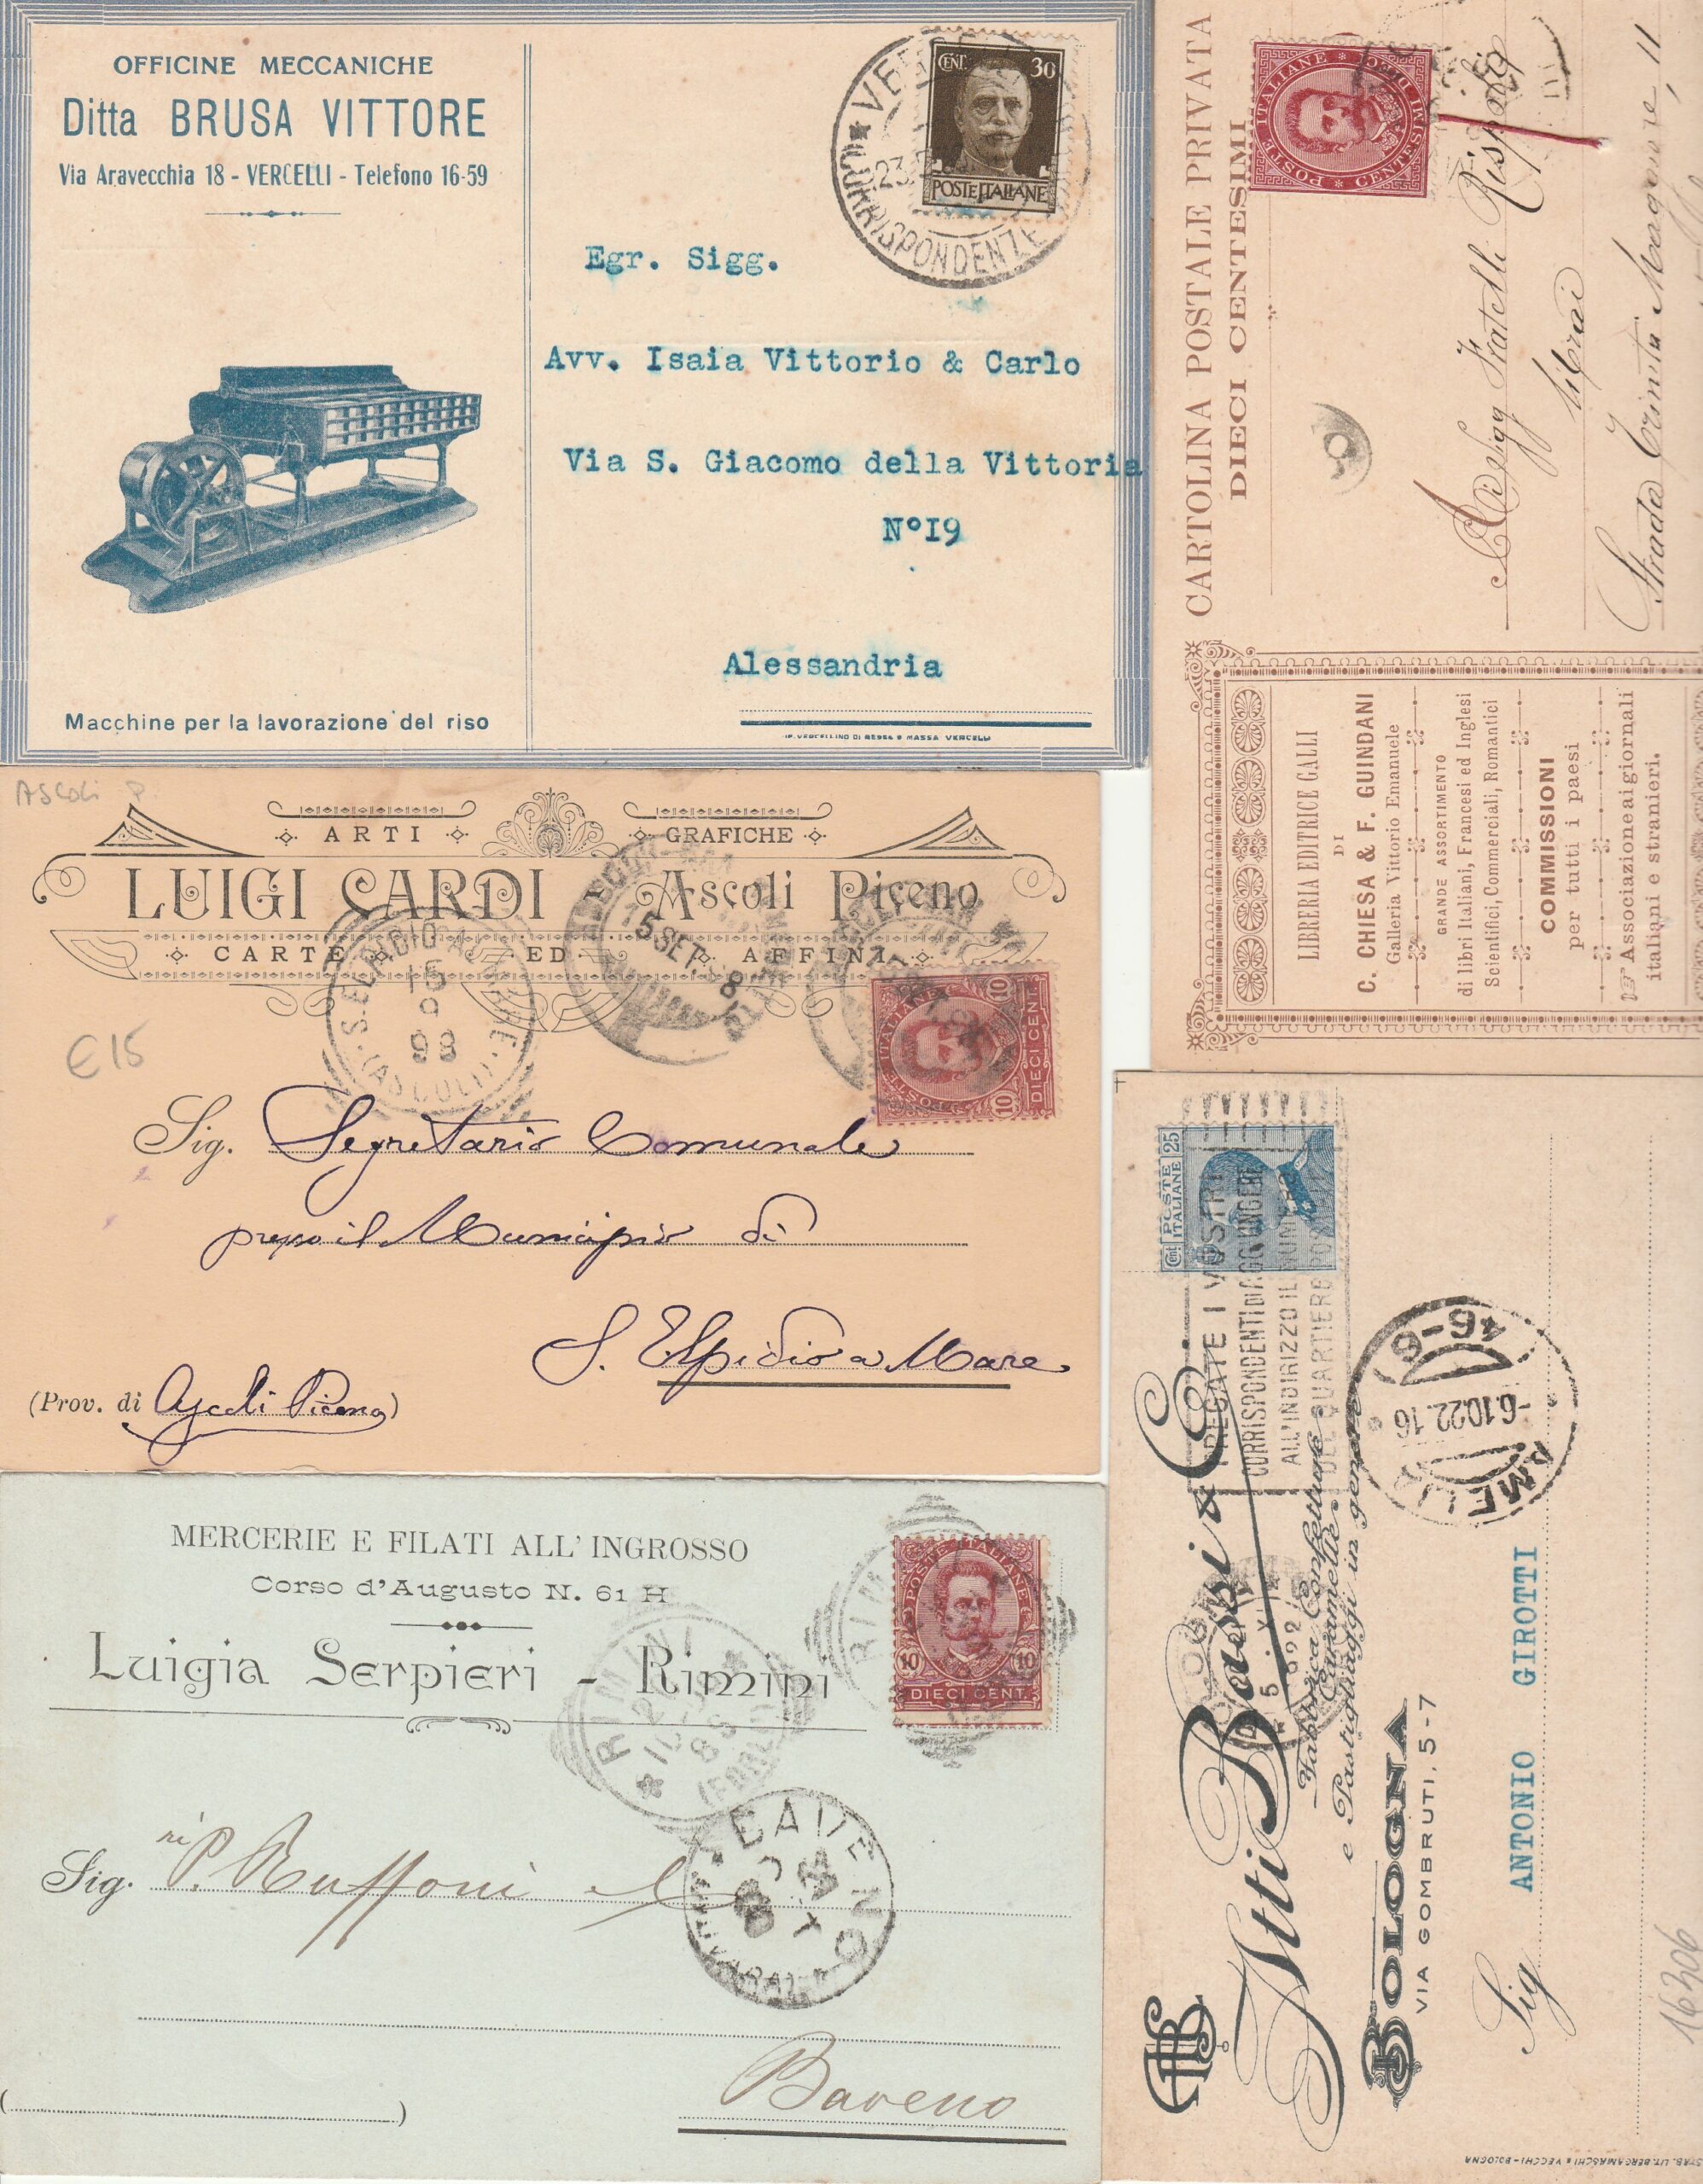 OFFICINE MECCANICHE
Ditta BRUSA VITTORE
Via Aravecchia 18 - VERCELLI - Telefono 16-59
Macchine per la lavorazione del riso
CENT. 30
POSTE ITALIANE
CORRISPONDENZE
23
Egr. Sigg.
Avv. Isaia Vittorio & Carlo
Via S. Giacomo della Vittoria
N°I9
Alessandria
CARTOLINA POSTALE PRIVATA
DIECI CENTESIMI
POSTE ITALIANE * CENTESIMI DIECI *
Fratelli
librai
Strada Trinità Maggiore, 11
LIBRERIA EDITRICE GALLI
DI
C. CHIESA & F. GUINDANI
Galleria Vittorio Emanuele
GRANDE ASSORTIMENTO
di libri Italiani, Francesi ed Inglesi
Scientifici, Commerciali, Romantici
COMMISSIONI
per tutti i paesi
Associazione ai giornali
italiani e stranieri.
Ascoli P.
ARTI GRAFICHE
LUIGI CARDI - Ascoli Piceno
CARTE ED AFFINI
15
9
98
5 SET
POSTE ITALIANE
10 DIECI CENT. 10
€15
Sig. Segretario Comunale
presso il Municipio di
S. Elpidio a Mare
(Prov. di Ascoli Piceno)
MERCERIE E FILATI ALL' INGROSSO
Corso d'Augusto N. 61 H
Luigia Serpieri - Rimini
POSTE ITALIANE
10 10
DIECI CENT.
RIMINI
Sig.ri P. Ruffoni e
BAVENO
Baveno
( )
Cent 25
POSTE ITALIANE
PREGATE I VOSTRI
CORRISPONDENTI DI AGGIUNGERE
ALL'INDIRIZZO IL NUMERO
DEL QUARTIERE POSTALE
AMELIA
-6.10.22.16
(46-6)
Atti Bassi & C.
Fabbrica Confetture
Caramelle
e Pastigliaggi in genere
BOLOGNA
VIA GOMBRUTI, 5-7
Sig ANTONIO GIROTTI
16306
STAB. LIT. BERGAMASCHI & VECCHI - BOLOGNA